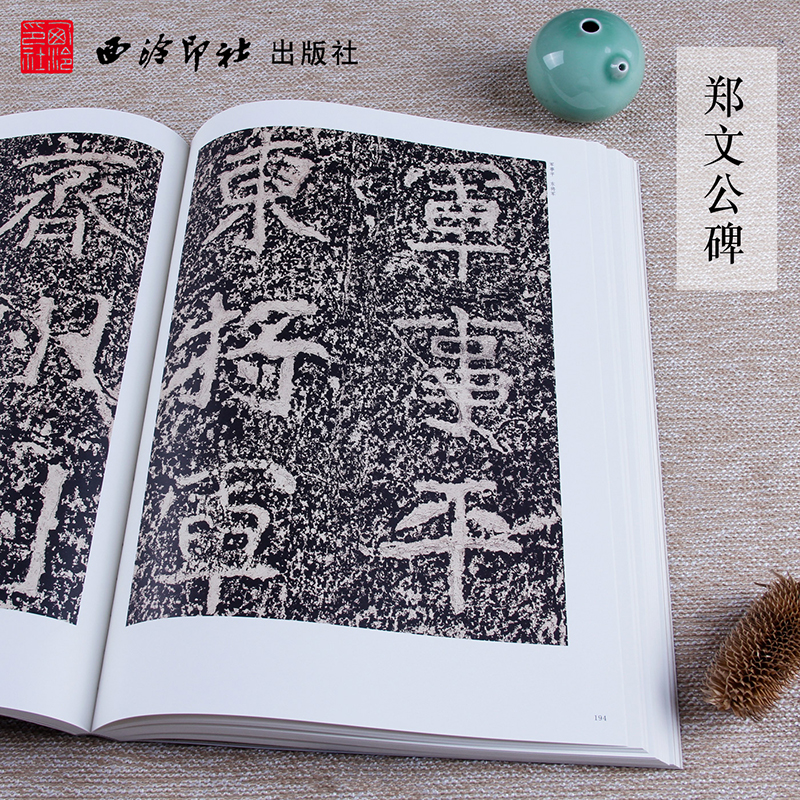 西泠印社
西泠印社 出版社
郑文公碑
軍事平
東將軍
齊
194